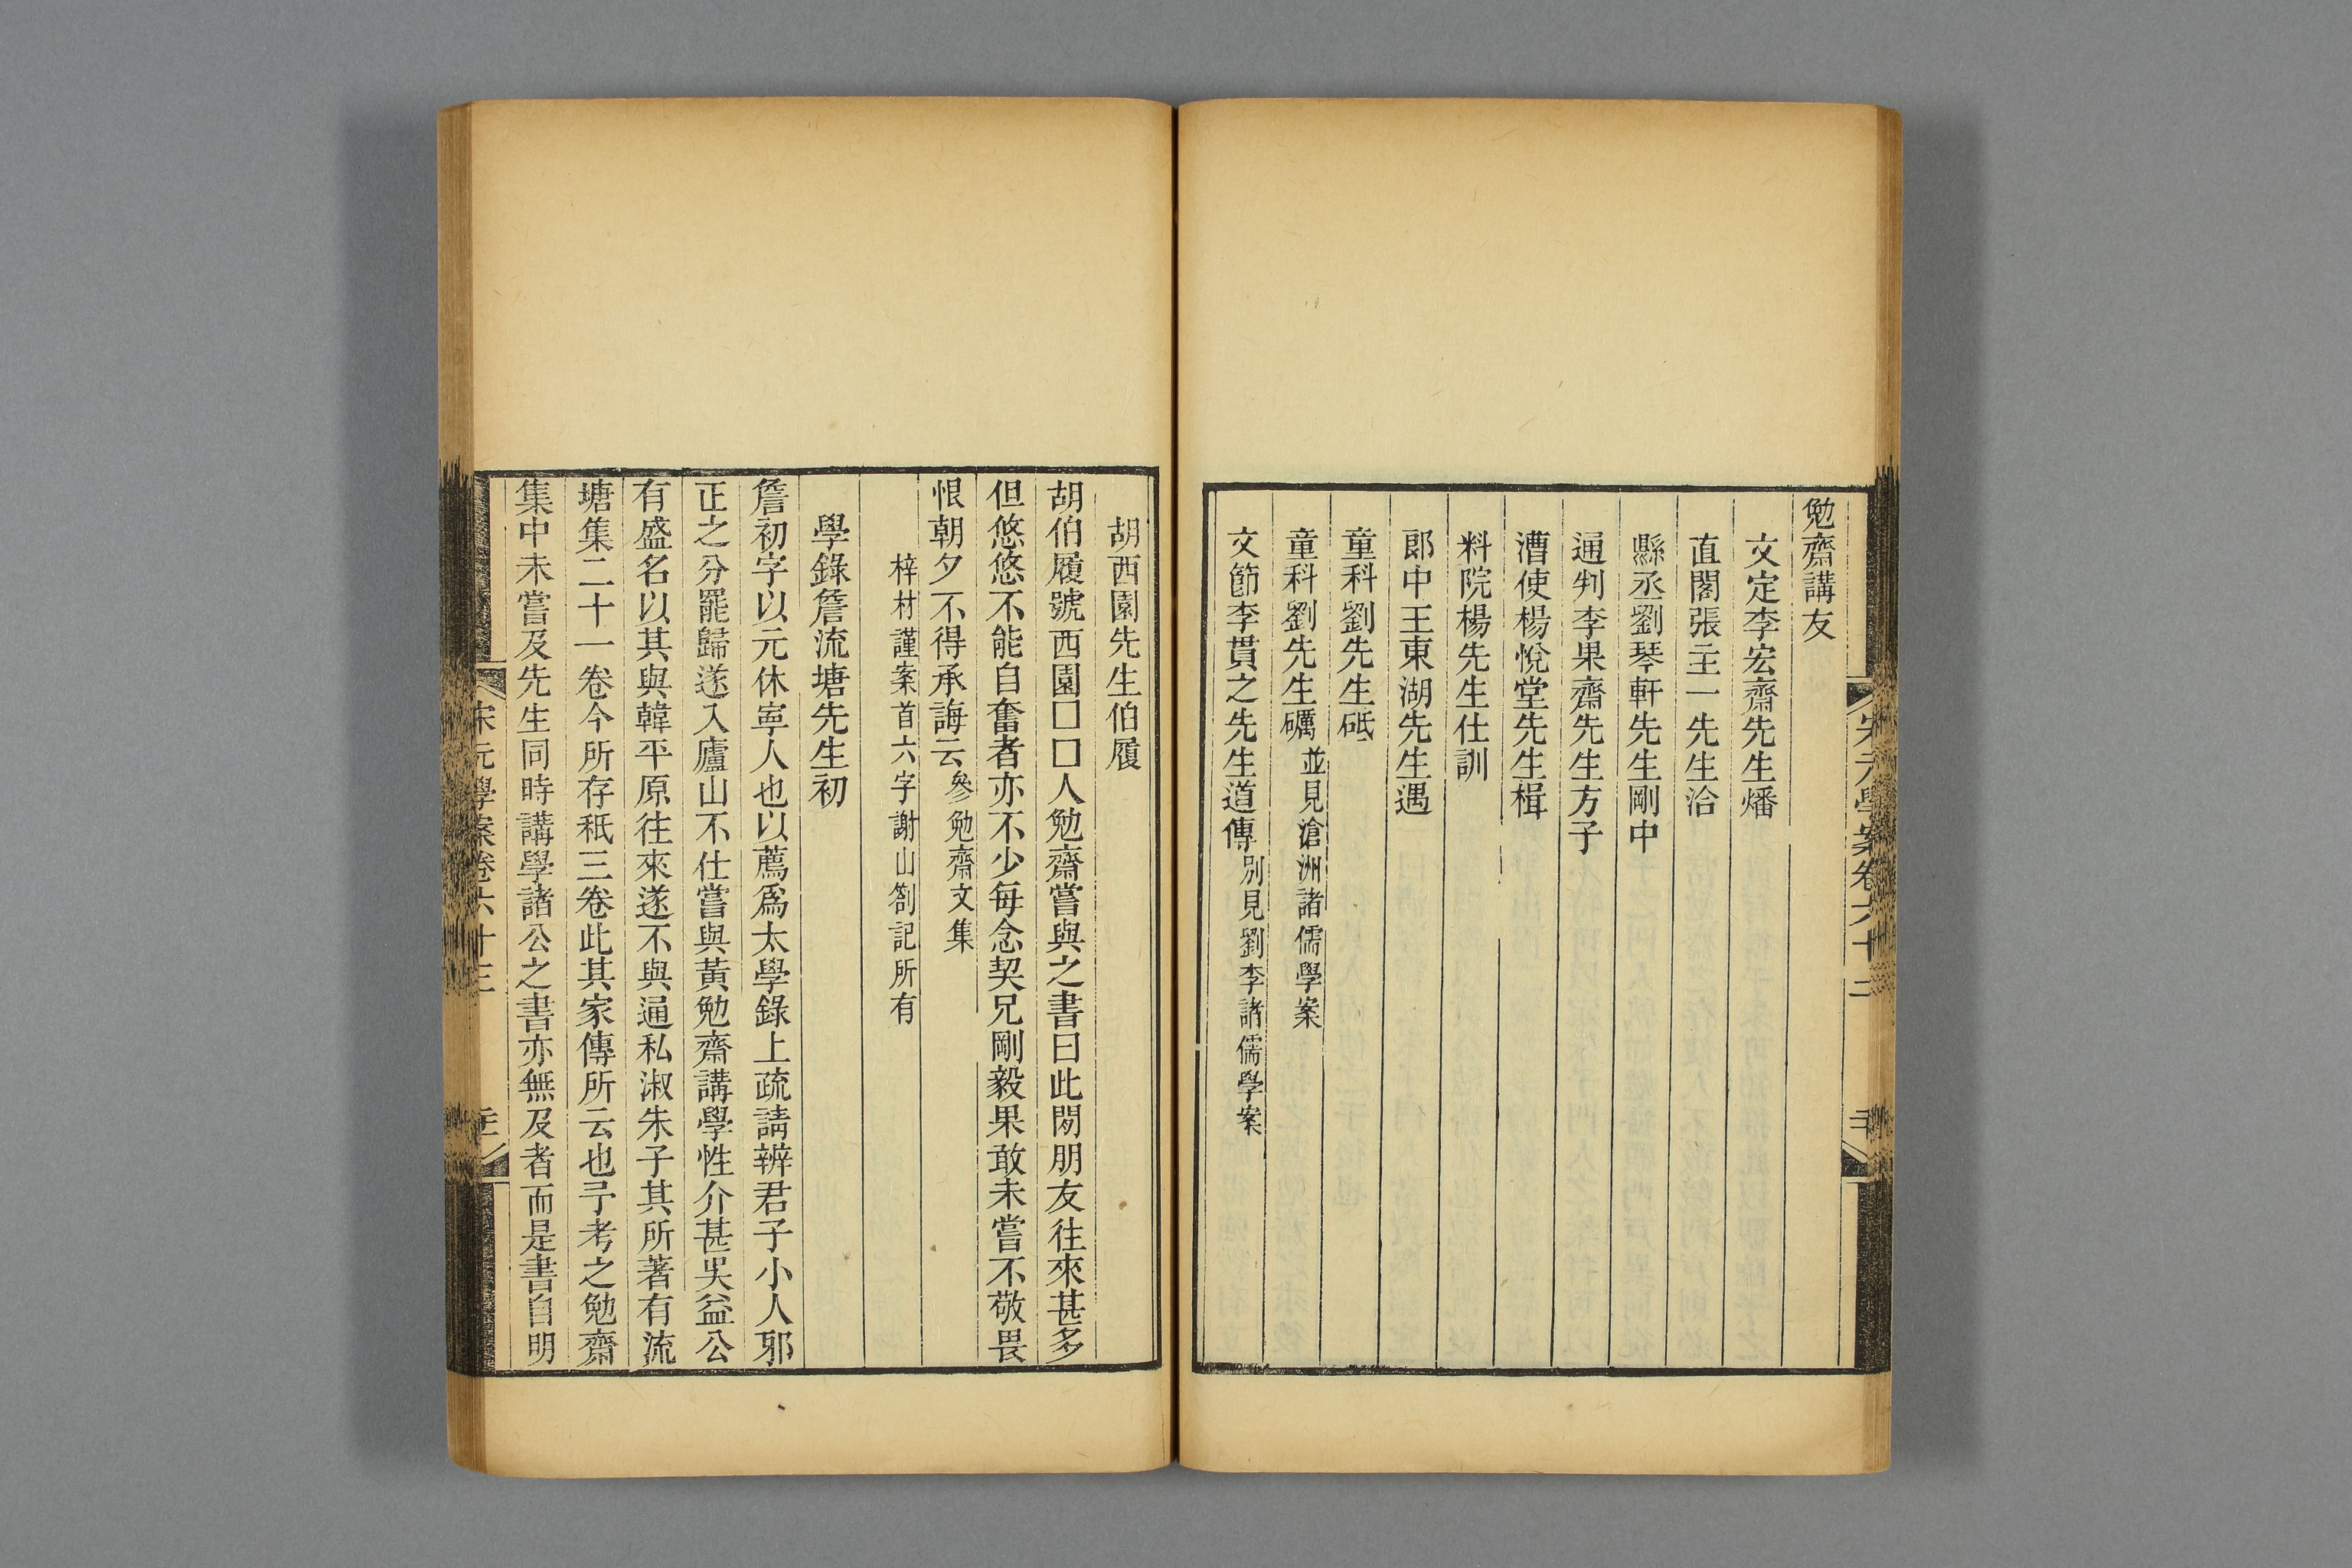 勉齋講友
文定李宏齋先生燔
直閣張主一先生洽
縣丞劉琴軒先生剛中
通判李果齋先生方子
漕使楊悅堂先生楫
料院楊先生仕訓
郎中王東湖先生遇
童科劉先生砥
童科劉先生礪並見滄洲諸儒學案
文節李貫之先生道傳別見劉李諸儒學案
胡西園先生伯履
胡伯履號西園□□人勉齋嘗與之書曰此閒朋友往來甚多
但悠悠不能自奮者亦不少每念契兄剛毅果敢未嘗不敬畏
恨朝夕不得承誨云參勉齋文集
梓材謹案首六字謝山劄記所有
學錄詹流塘先生初
詹初字以元休寧人也以薦爲太學錄上疏請辨君子小人邪
正之分罷歸遂入廬山不仕嘗與黃勉齋講學性介甚吳益公
有盛名以其與韓平原往來遂不與通私淑朱子其所著有流
塘集二十一卷今所存秖三卷此其家傳所云也予考之勉齋
集中未嘗及先生同時講學諸公之書亦無及者而是書自明
宋元學案卷六十三